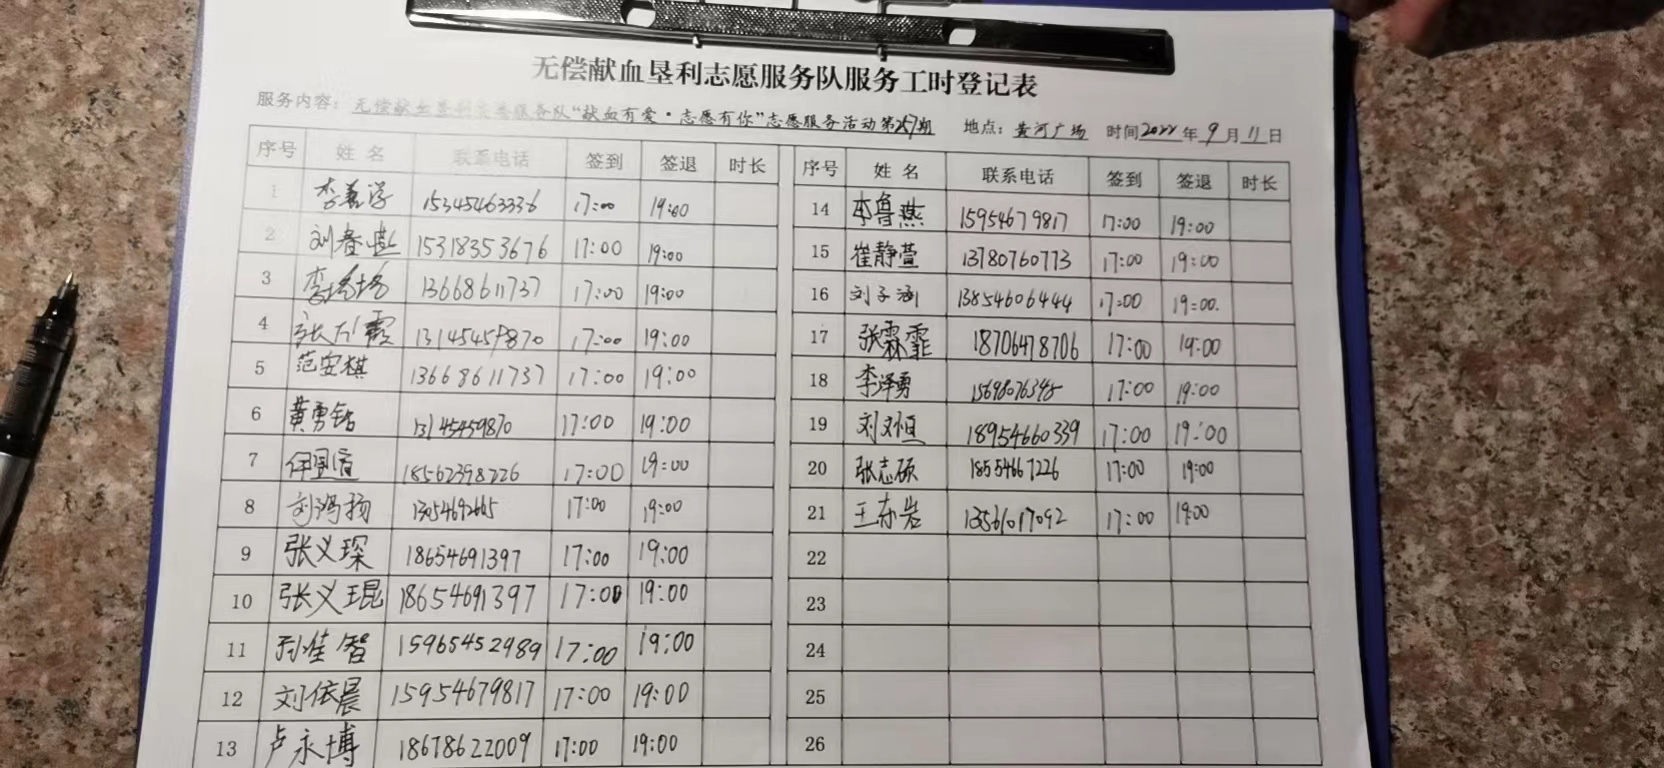 无偿献血垦利志愿服务队服务工时登记表
服务内容：无偿献血垦利志愿服务队“献血有爱·志愿有你”志愿服务活动第 期 地点：黄河广场 时间2022年9月11日
序号 姓名 联系电话 签到 签退 时长
1 李 15345463336 17:00 19:00
2 刘春 15318353676 17:00 19:00
3 李 13668611737 17:00 19:00
4 张 霞 13145459870 17:00 19:00
5 范安棋 13668611737 17:00 19:00
6 黄勇钻 13145459870 17:00 19:00
7 18562398226 17:00 19:00
8 刘鸿扬 17:00 19:00
9 张义琛 18654691397 17:00 19:00
10 张义琨 18654691397 17:00 19:00
11 孙佳智 15965452989 17:00 19:00
12 刘依晨 15954679817 17:00 19:00
13 卢永博 18678622009 17:00 19:00
序号 姓名 联系电话 签到 签退 时长
14 李鲁燕 15954679817 17:00 19:00
15 崔静萱 13780760773 17:00 19:00
16 刘子涵 13854606444 17:00 19:00.
17 张霖霏 18706478706 17:00 19:00
18 李泽勇 17:00 19:00
19 刘文恒 18954660339 17:00 19:00
20 张志硕 18554667226 17:00 19:00
21 王东岩 13561017092 17:00 19:00
22
23
24
25
26